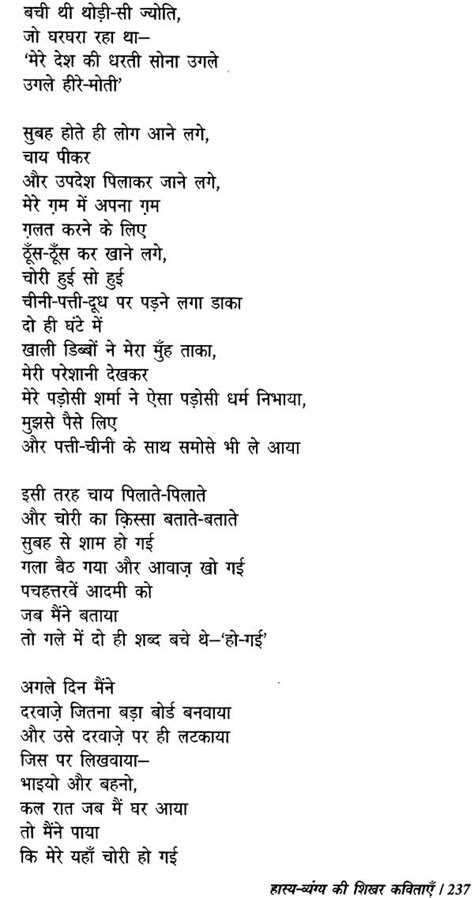 बची थी थोड़ी-सी ज्योति,
जो घरघरा रहा था—
‘मेरे देश की धरती सोना उगले
उगले हीरे-मोती’
सुबह होते ही लोग आने लगे,
चाय पीकर
और उपदेश पिलाकर जाने लगे,
मेरे ग़म में अपना ग़म
ग़लत करने के लिए
ठूँस-ठूँस कर खाने लगे,
चोरी हुई सो हुई
चीनी-पत्ती-दूध पर पड़ने लगा डाका
दो ही घंटे में
खाली डिब्बों ने मेरा मुँह ताका,
मेरी परेशानी देखकर
मेरे पड़ोसी शर्मा ने ऐसा पड़ोसी धर्म निभाया,
मुझसे पैसे लिए
और पत्ती-चीनी के साथ समोसे भी ले आया
इसी तरह चाय पिलाते-पिलाते
और चोरी का क़िस्सा बताते-बताते
सुबह से शाम हो गई
गला बैठ गया और आवाज़ खो गई
पचहत्तरवें आदमी को
जब मैंने बताया
तो गले में दो ही शब्द बचे थे—‘हो-गई’
अगले दिन मैंने
दरवाज़े जितना बड़ा बोर्ड बनवाया
और उसे दरवाज़े पर ही लटकाया
जिस पर लिखवाया—
भाइयो और बहनो,
कल रात जब मैं घर आया
तो मैंने पाया
कि मेरे यहाँ चोरी हो गई
हास्य-व्यंग्य की शिखर कविताएँ / 237